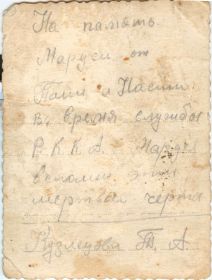 На память
Маруси от
Паши и Насти
во время службы
Р.К.К.А.
вспомни эти
мертвые черты
Кузнецова Т. А.